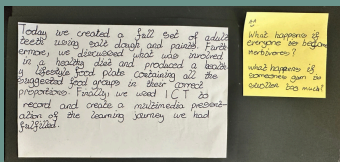 Today we created a full set of adult
teeth using salt dough and paints. Furth
ermore, we discussed what was involved
in a healthy diet and produced a health
y lifestyle food plate containing all the
suggested food groups in their correct
proportions. Finally we used ICT to
record and create a multimedia present-
ation of the learning journey we had
fulfilled.
What happens if
everyone to become
herbivores?
what happens if
someones gum is
swollen too much?